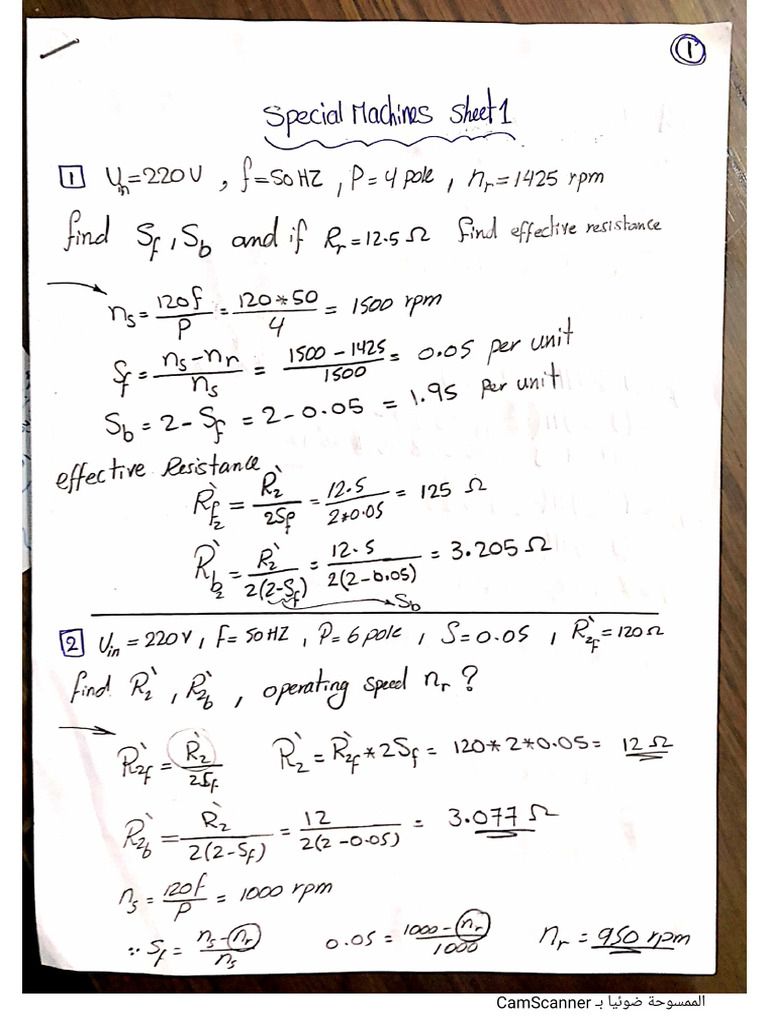 ①
Special Machines Sheet 1
1 Uin=220V , f=50HZ , P=4 pole , nr=1425 rpm
find Sf , Sb and if Rr=12.5Ω find effective resistance
ns = 120f/P = 120*50/4 = 1500 rpm
Sf = ns-nr/ns = 1500-1425/1500 = 0.05 per unit
Sb = 2-Sf = 2-0.05 = 1.95 per unit
effective Resistance
R`f2 = R`2/2Sf = 12.5/2*0.05 = 125 Ω
R`b2 = R`2/2(2-Sf) = 12.5/2(2-0.05) = 3.205 Ω
Sb
2 Uin=220V , f=50HZ , P=6 pole , S=0.05 , R`2f=120Ω
find R`2 , R`2b , operating speed nr ?
R`2f = R`2/2Sf R`2 = R`2f*2Sf = 120*2*0.05 = 12Ω
R`2b = R`2/2(2-Sf) = 12/2(2-0.05) = 3.077 Ω
ns = 120f/P = 1000 rpm
∵ Sf = ns-nr/ns 0.05 = 1000-nr/1000 nr = 950 rpm
الممسوحة ضوئيا بـ CamScanner